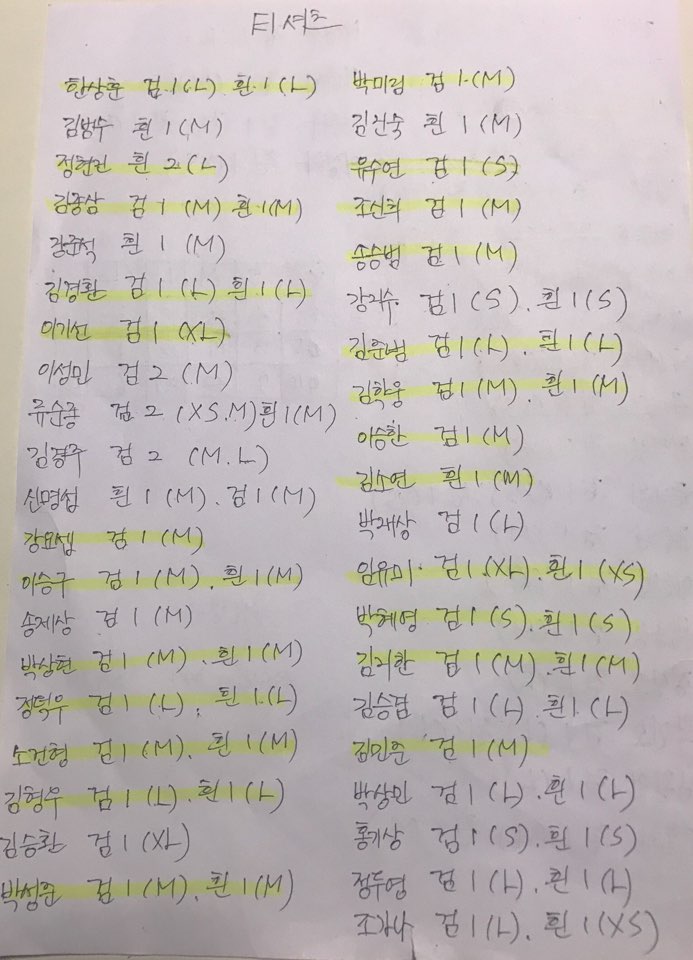 티셔츠
한상훈 검 1 (L) 흰 1 (L)
김범수 흰 1 (M)
정현진 흰 2 (L)
김종삼 검 1 (M) 흰 1 (M)
강준석 흰 1 (M)
김경환 검 1 (L) 흰 1 (L)
이기선 검 1 (XL)
이성민 검 2 (M)
류순종 검 2 (XS.M) 흰 1 (M)
김경주 검 2 (M.L)
신명섭 흰 1 (M). 검 1 (M)
강요셉 검 1 (M)
이승구 검 1 (M). 흰 1 (M)
송제상 검 1 (M)
박상현 검 1 (M). 흰 1 (M)
정덕우 검 1 (L). 흰 1 (L)
소건형 검 1 (M). 흰 1 (M)
김형우 검 1 (L). 흰 1 (L)
김승환 검 1 (XL)
박성준 검 1 (M). 흰 1 (M)
박미림 검 1 (M)
김건숙 흰 1 (M)
유수연 검 1 (S)
조신희 검 1 (M)
송승범 검 1 (M)
강지수 검 1 (S). 흰 1 (S)
김준범 검 1 (L). 흰 1 (L)
김학웅 검 1 (M). 흰 1 (M)
이승찬 검 1 (M)
김소연 흰 1 (M)
박재상 검 1 (L)
임유미 검 1 (XL). 흰 1 (XS)
박혜영 검 1 (S). 흰 1 (S)
김지환 검 1 (M). 흰 1 (M)
김승겸 검 1 (L). 흰 1 (L)
김민준 검 1 (M)
박상민 검 1 (L). 흰 1 (L)
홍기상 검 1 (S). 흰 1 (S)
정두영 검 1 (L). 흰 1 (L)
검 1 (L). 흰 1 (XS)